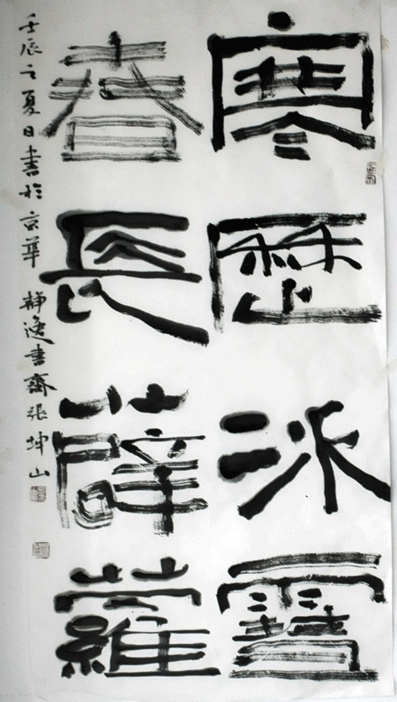 寒歷冰雪
春長薜蘿
壬辰之夏日書於京華 靜逸書齋張坤山